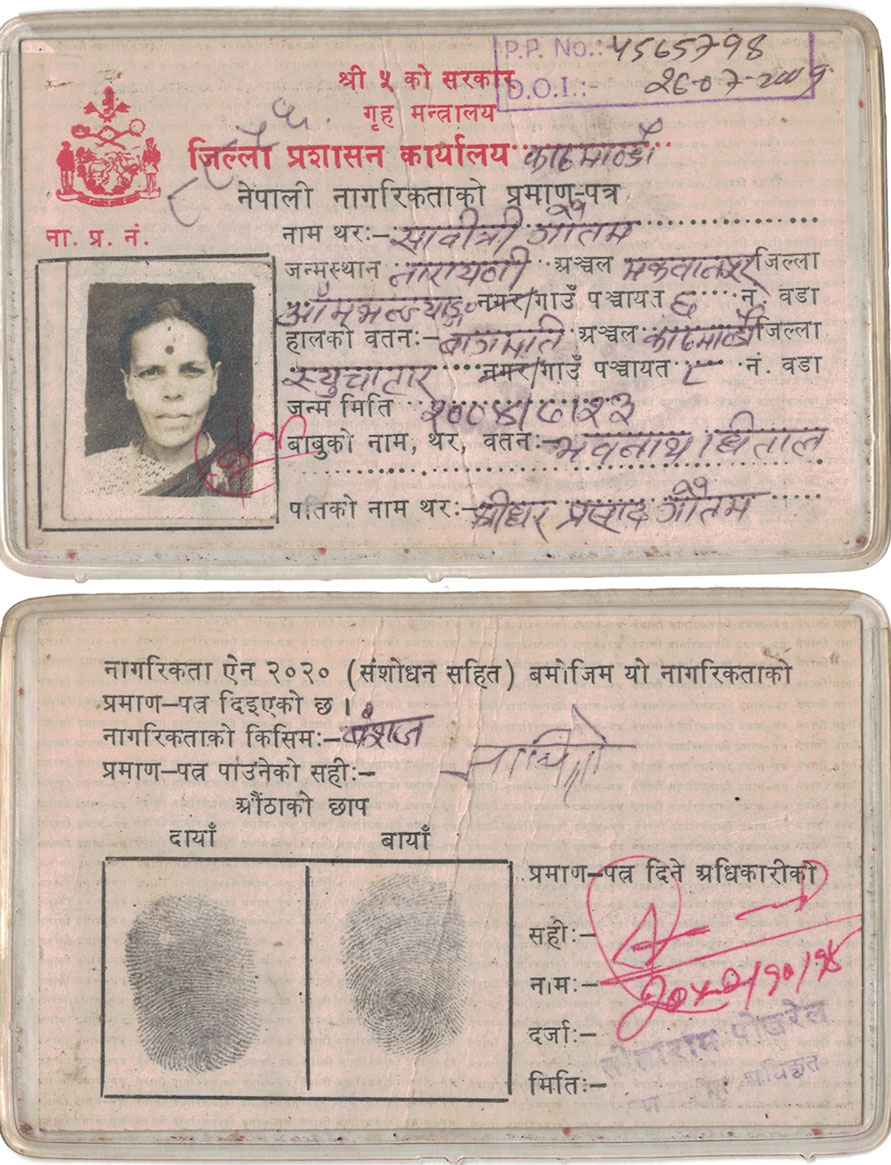 P.P. No.:- 4565798
D.O.I.:- 26-07-2009
श्री ५ को सरकार
गृह मन्त्रालय
जिल्ला प्रशासन कार्यालय काठमाण्डौ
नेपाली नागरिकताको प्रमाण-पत्र
ना. प्र. नं.
नाम थरः- सावीत्री गौतम
जन्मस्थान नारायणी अञ्चल मकवानपुर जिल्ला
नगर/गाउँ पञ्चायत ६ नं. वडा
हालको वतनः- बागमति अञ्चल काठमाण्डौ जिल्ला
स्युचाटार नगर/गाउँ पञ्चायत ८ नं. वडा
जन्म मिति २००४/७/२३
बाबुको नाम, थर, वतनः- भवनाथ धिताल
पतिको नाम थरः- श्रीधर प्रसाद गौतम
नागरिकता ऐन २०२० (संशोधन सहित) बमोजिम यो नागरिकताको
प्रमाण-पत्र दिइएको छ ।
नागरिकताको किसिमः- वंशज
प्रमाण-पत्र पाउनेको सहीः-
औंठाको छाप
दायाँ बायाँ
प्रमाण-पत्र दिने अधिकारीको
सहीः-
नामः-
दर्जाः-
मितिः-